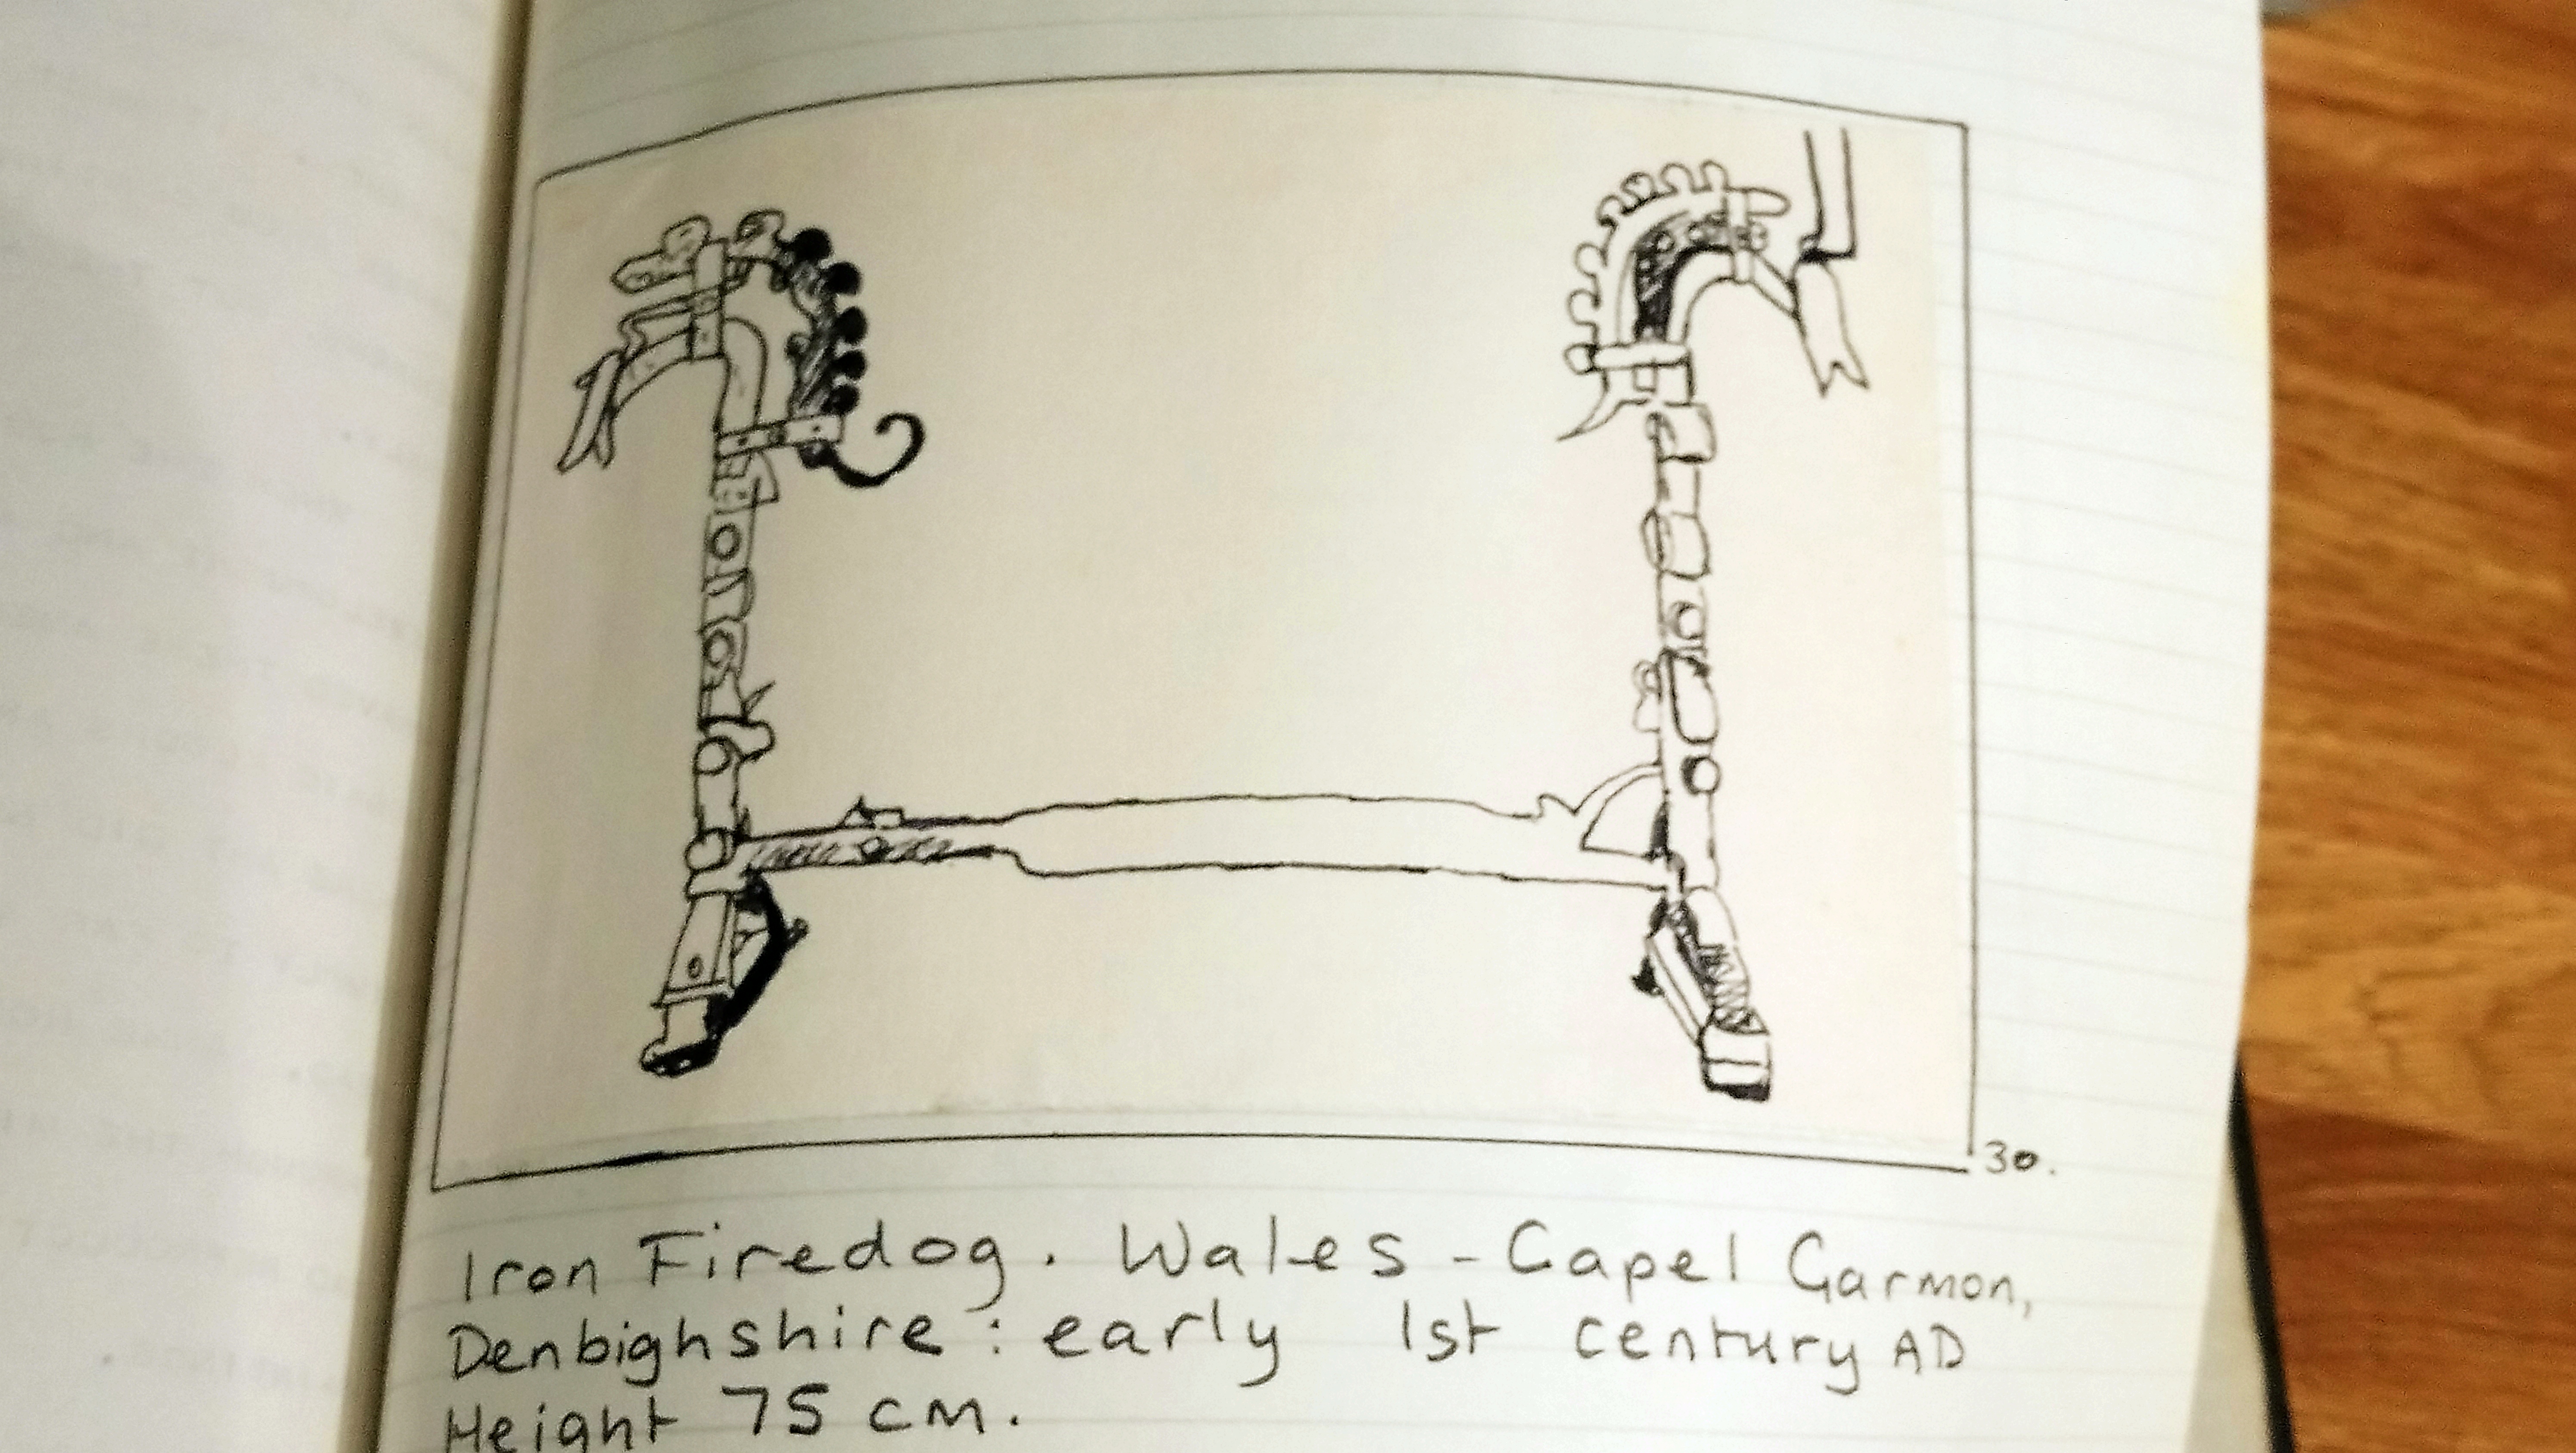 30.
Iron Firedog. Wales - Capel Garmon,
Denbighshire: early 1st century AD
Height 75 cm.